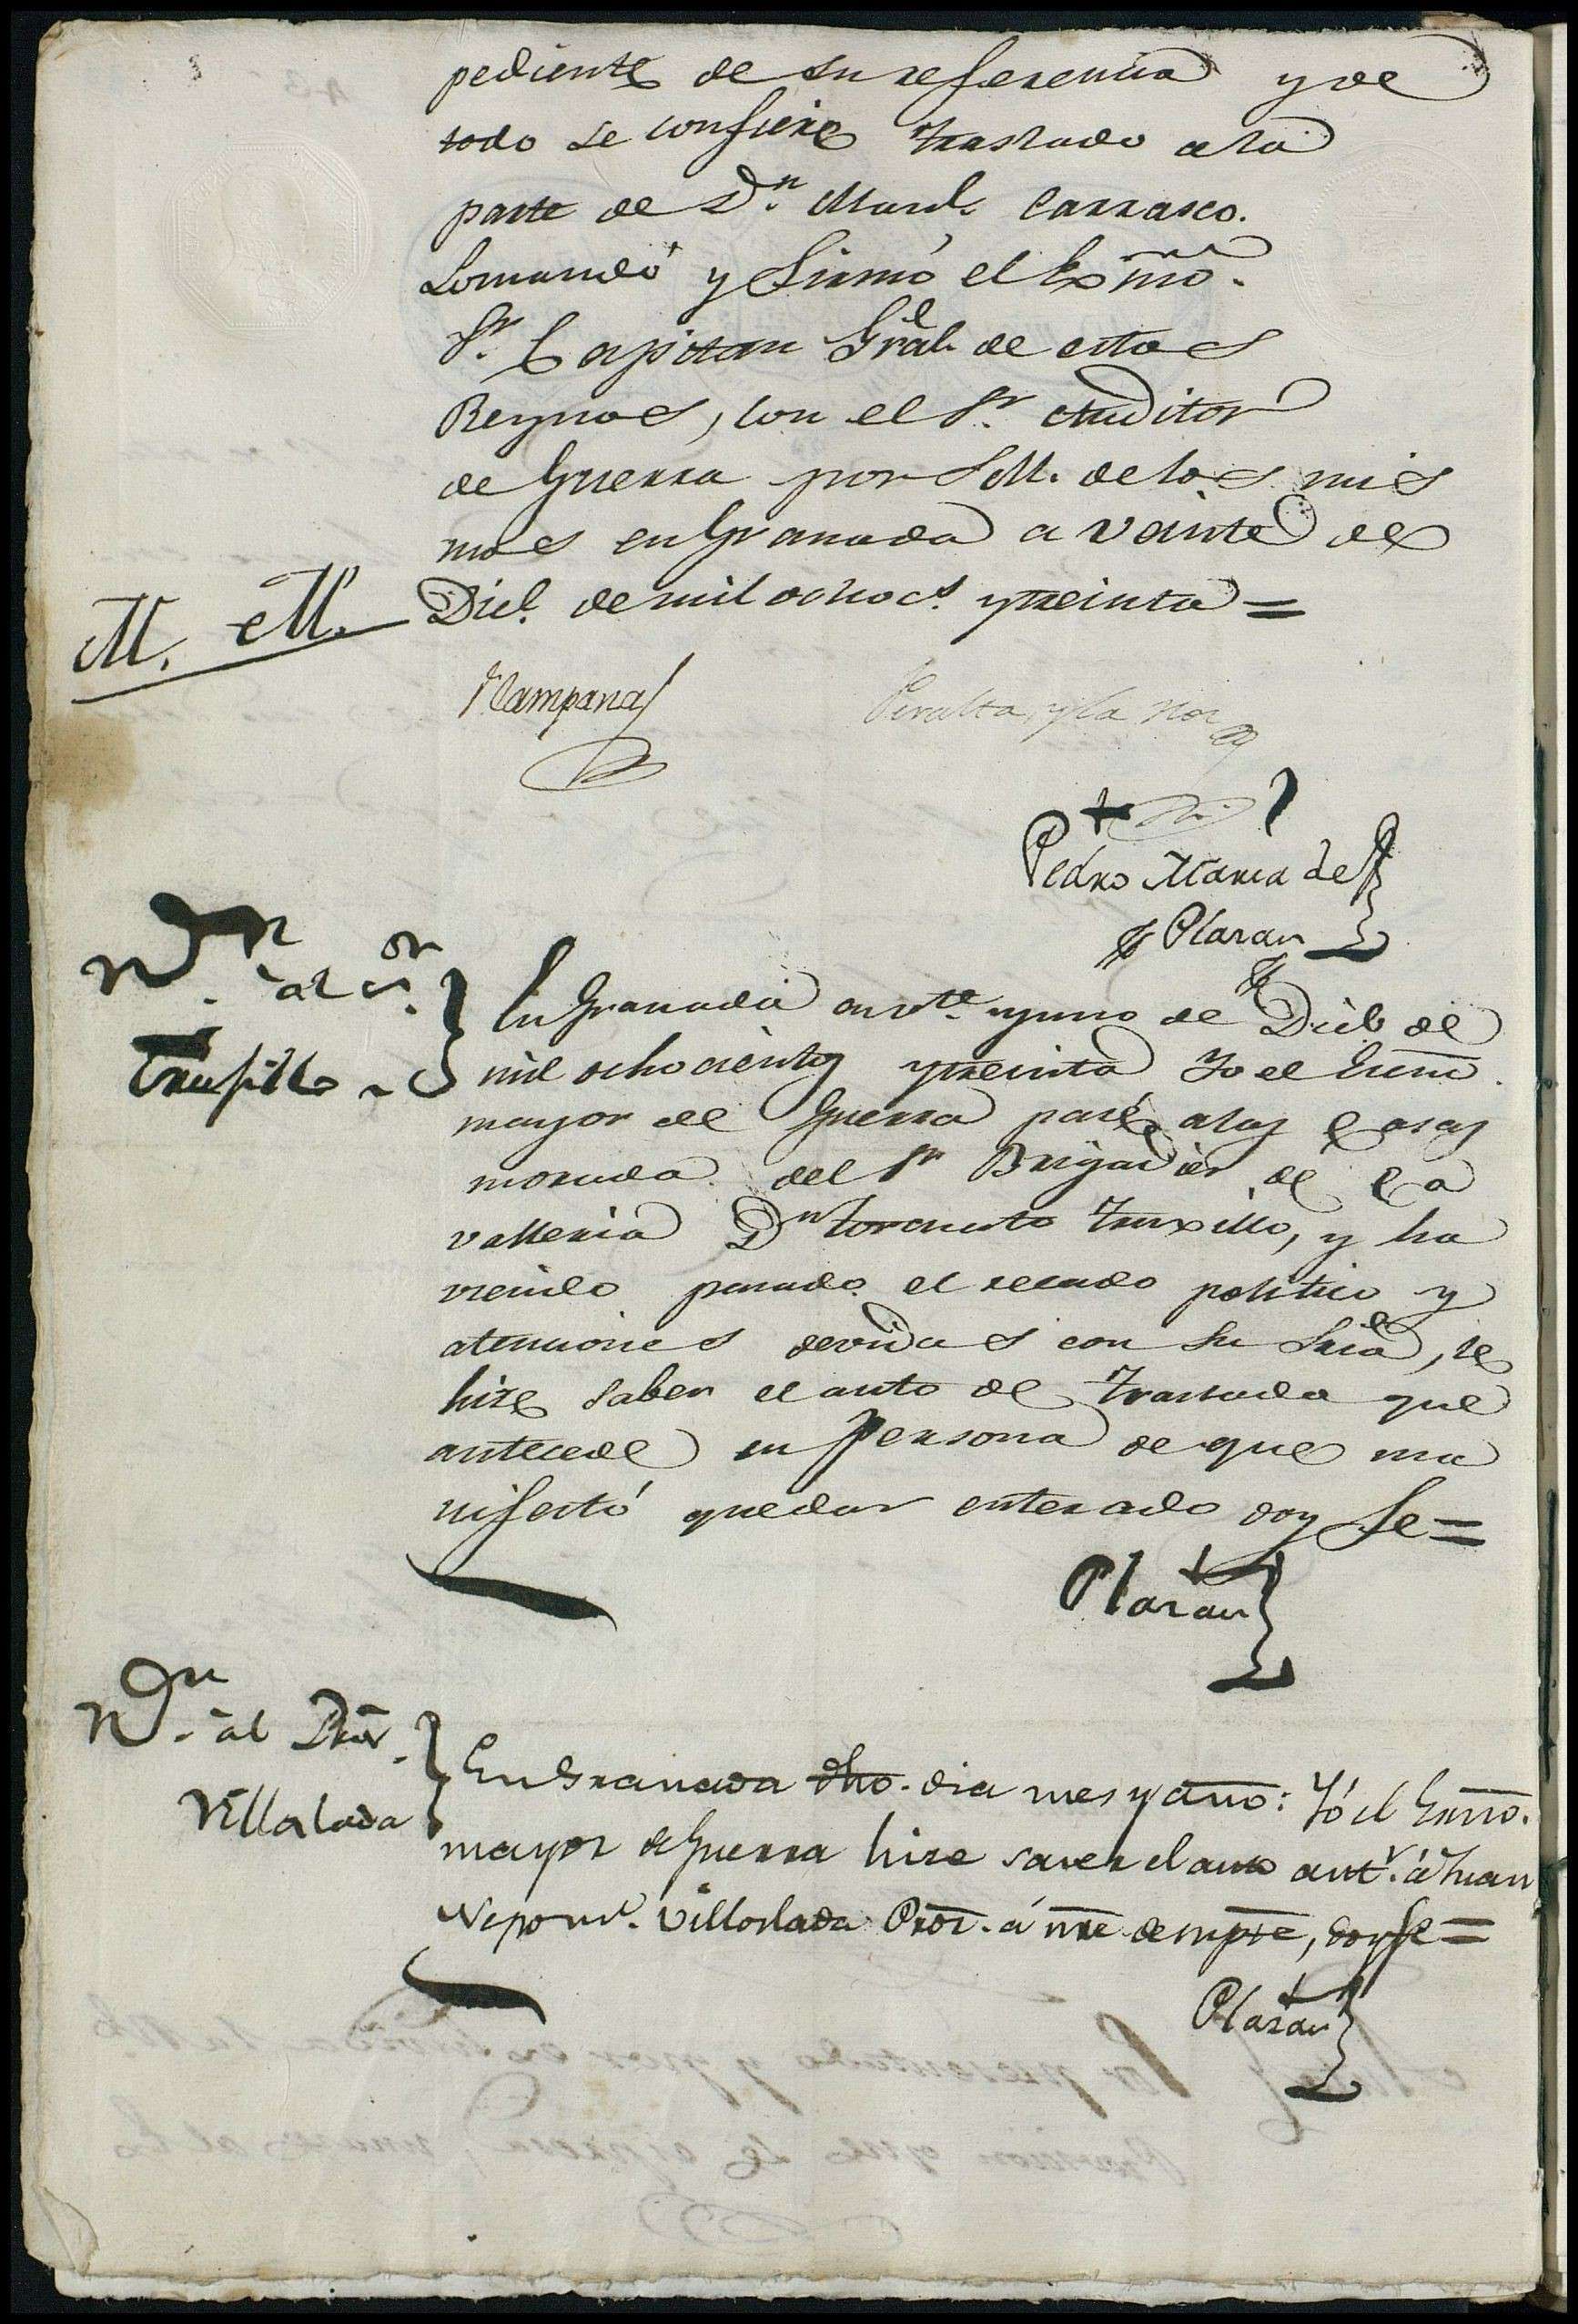 pediente de su referencia y de
todo se confiere traslado a la
parte de Dn. Manl. Carrasco.
Lo mandó y firmó el Exmo.
Sr. Capitan Gral. de estos
Reynos, con el Sr. Auditor
de Guerra por S.M. de los mis
mos en Granada a veinte de
Dice. de mil ochocs. y treinta =
M. M.
Campana
Peralta y la
Pedro Maria de
Olazan
Non. al Sor.
Truxillo
En Granada en vte. y uno de Dice de
mil ochocientos y treinta Yo el Esno.
mayor de Guerra pasé a las casas
morada del Sr Brigadier de Ca
valleria Dn Torcuato Truxillo, y ha
viendo pasado el recado politico y
atenciones devidas con su Sria, le
hize saber el auto de traslado que
antecede en persona de que ma
nifestó quedar enterado doy fe =
Olazan
Non. al Pror.
Villoslada
En Granada dho. dia mes y año: Yó el Esno.
mayor de Guerra hize saver el auto antr. á Juan
Nepomo. Villoslada Pror. á nre de su pte, doy fe =
Olazan